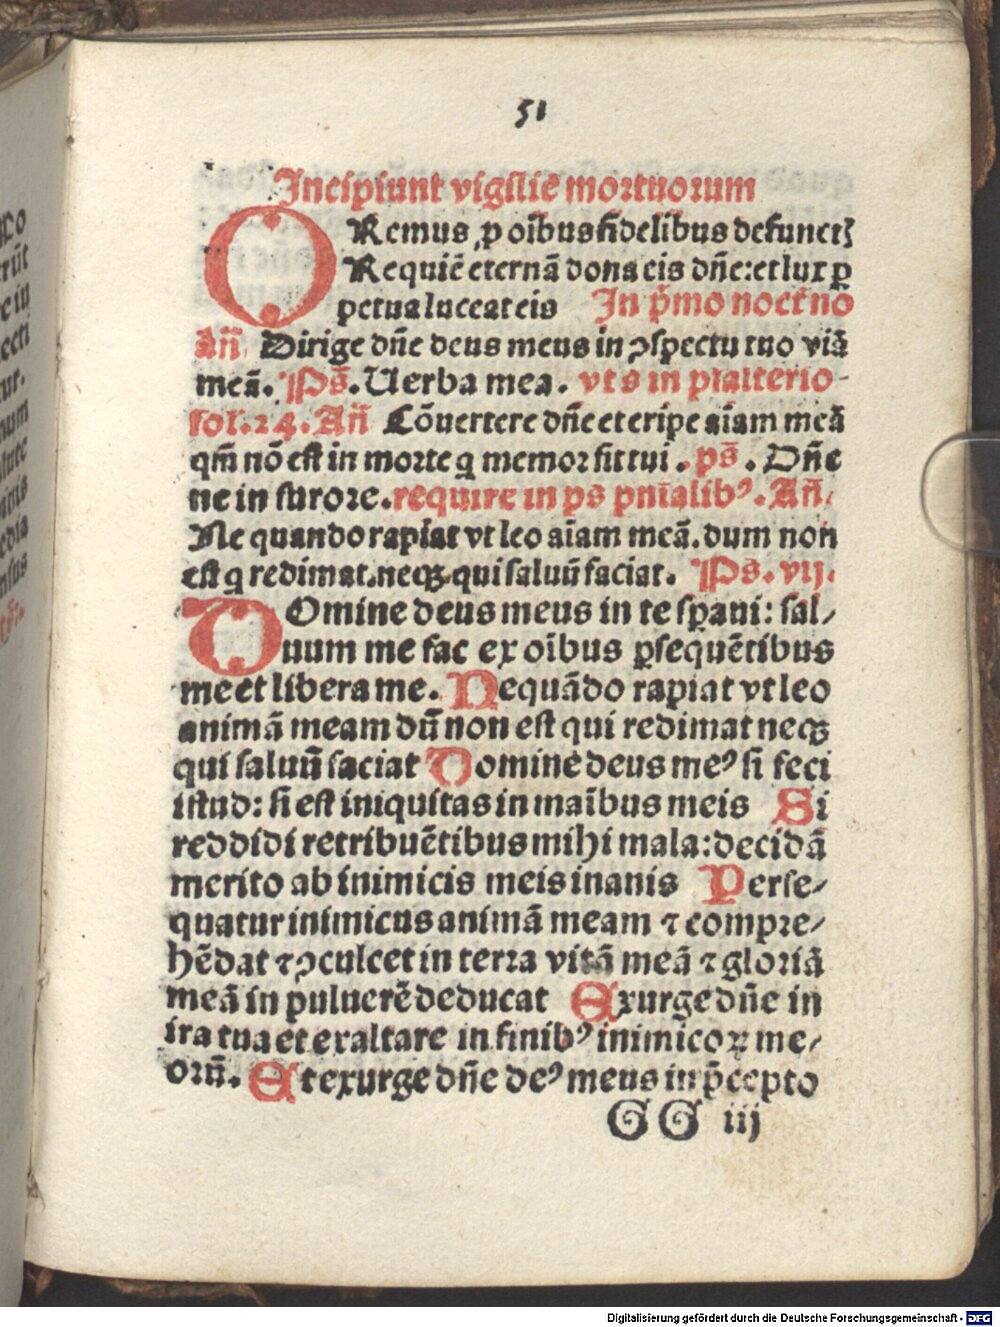 51
Incipiunt vigilie mortuorum
ORemus p̱ oı̄bus fidelibus defunctꝫ
Requiē eternā dona eis dn̄e: et lux ꝑ
petua luceat eis In p̄mo noct̄no
Añ Dirige dn̄e deus meus in ꝯspectu tuo viā
meā. Ps̄. Uerba mea. vts in psalterio
fol. 24. Añ Cōuertere dn̄e et eripe aı̄am meā
qm̄ nō est in morte q memor sit tui. ps̄. Dn̄e
ne in furore. require in ps pnı̄alibꝰ. Añ.
Ne quando rapiat vt leo aı̄am meā. dum non
est q redimat. neqꝫ qui saluū faciat. Ps. vij.
DOmine deus meus in te sp̄aui: sal⸗
uum me fac ex oı̄bus ꝑsequētibus
me et libera me. Nequādo rapiat vt leo
animā meam dū non est qui redimat neqꝫ
qui saluū faciat Domine deus meꝰ si feci
istud: si est iniquitas in maı̄bus meis Si
reddidi retribuētibus mihi mala: decidā
merito ab inimicis meis inanis Perse⸗
quatur inimicus animā meam ⁊ compre⸗
hēdat ⁊ ꝯculcet in terra vitā meā ⁊ gloriā
meā in puluerē deducat Exurge dn̄e in
ira tua et exaltare in finibꝰ inimicoꝝ me⸗
orū. Et exurge dn̄e deꝰ meus in p̄cepto
GG iij
Digitalisierung gefördert durch die Deutsche Forschungsgemeinschaft - DFG